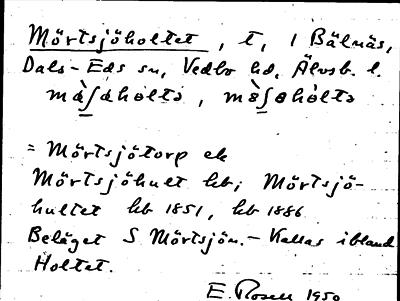 Mörtsjöholtet, t, i Bälnäs,
Dals-Eds sn, Vedbo hd, Älvsb. l.
mö̀ʃəhòltə, mö̀ʃəhòltə
= Mörtsjötorp ek
Mörtsjöhult kb; Mörtsjö-
hultet kb 1851, kb 1886
Beläget S Mörtsjön. - Kallas ibland
Holtet.
E. Rosell 1950